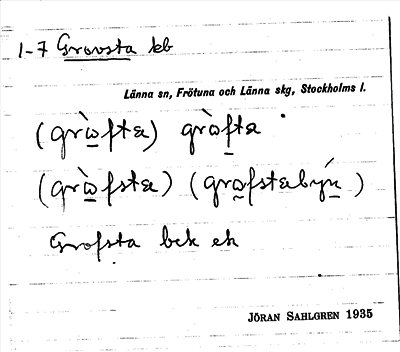 1-7 Grovsta kb
Länna sn, Frötuna och Länna skg, Stockholms l.
(grὼfta) grὼfta
(grὼfsta) (grωfstabýn)
Grofsta bck ek
JÖRAN SAHLGREN 1935